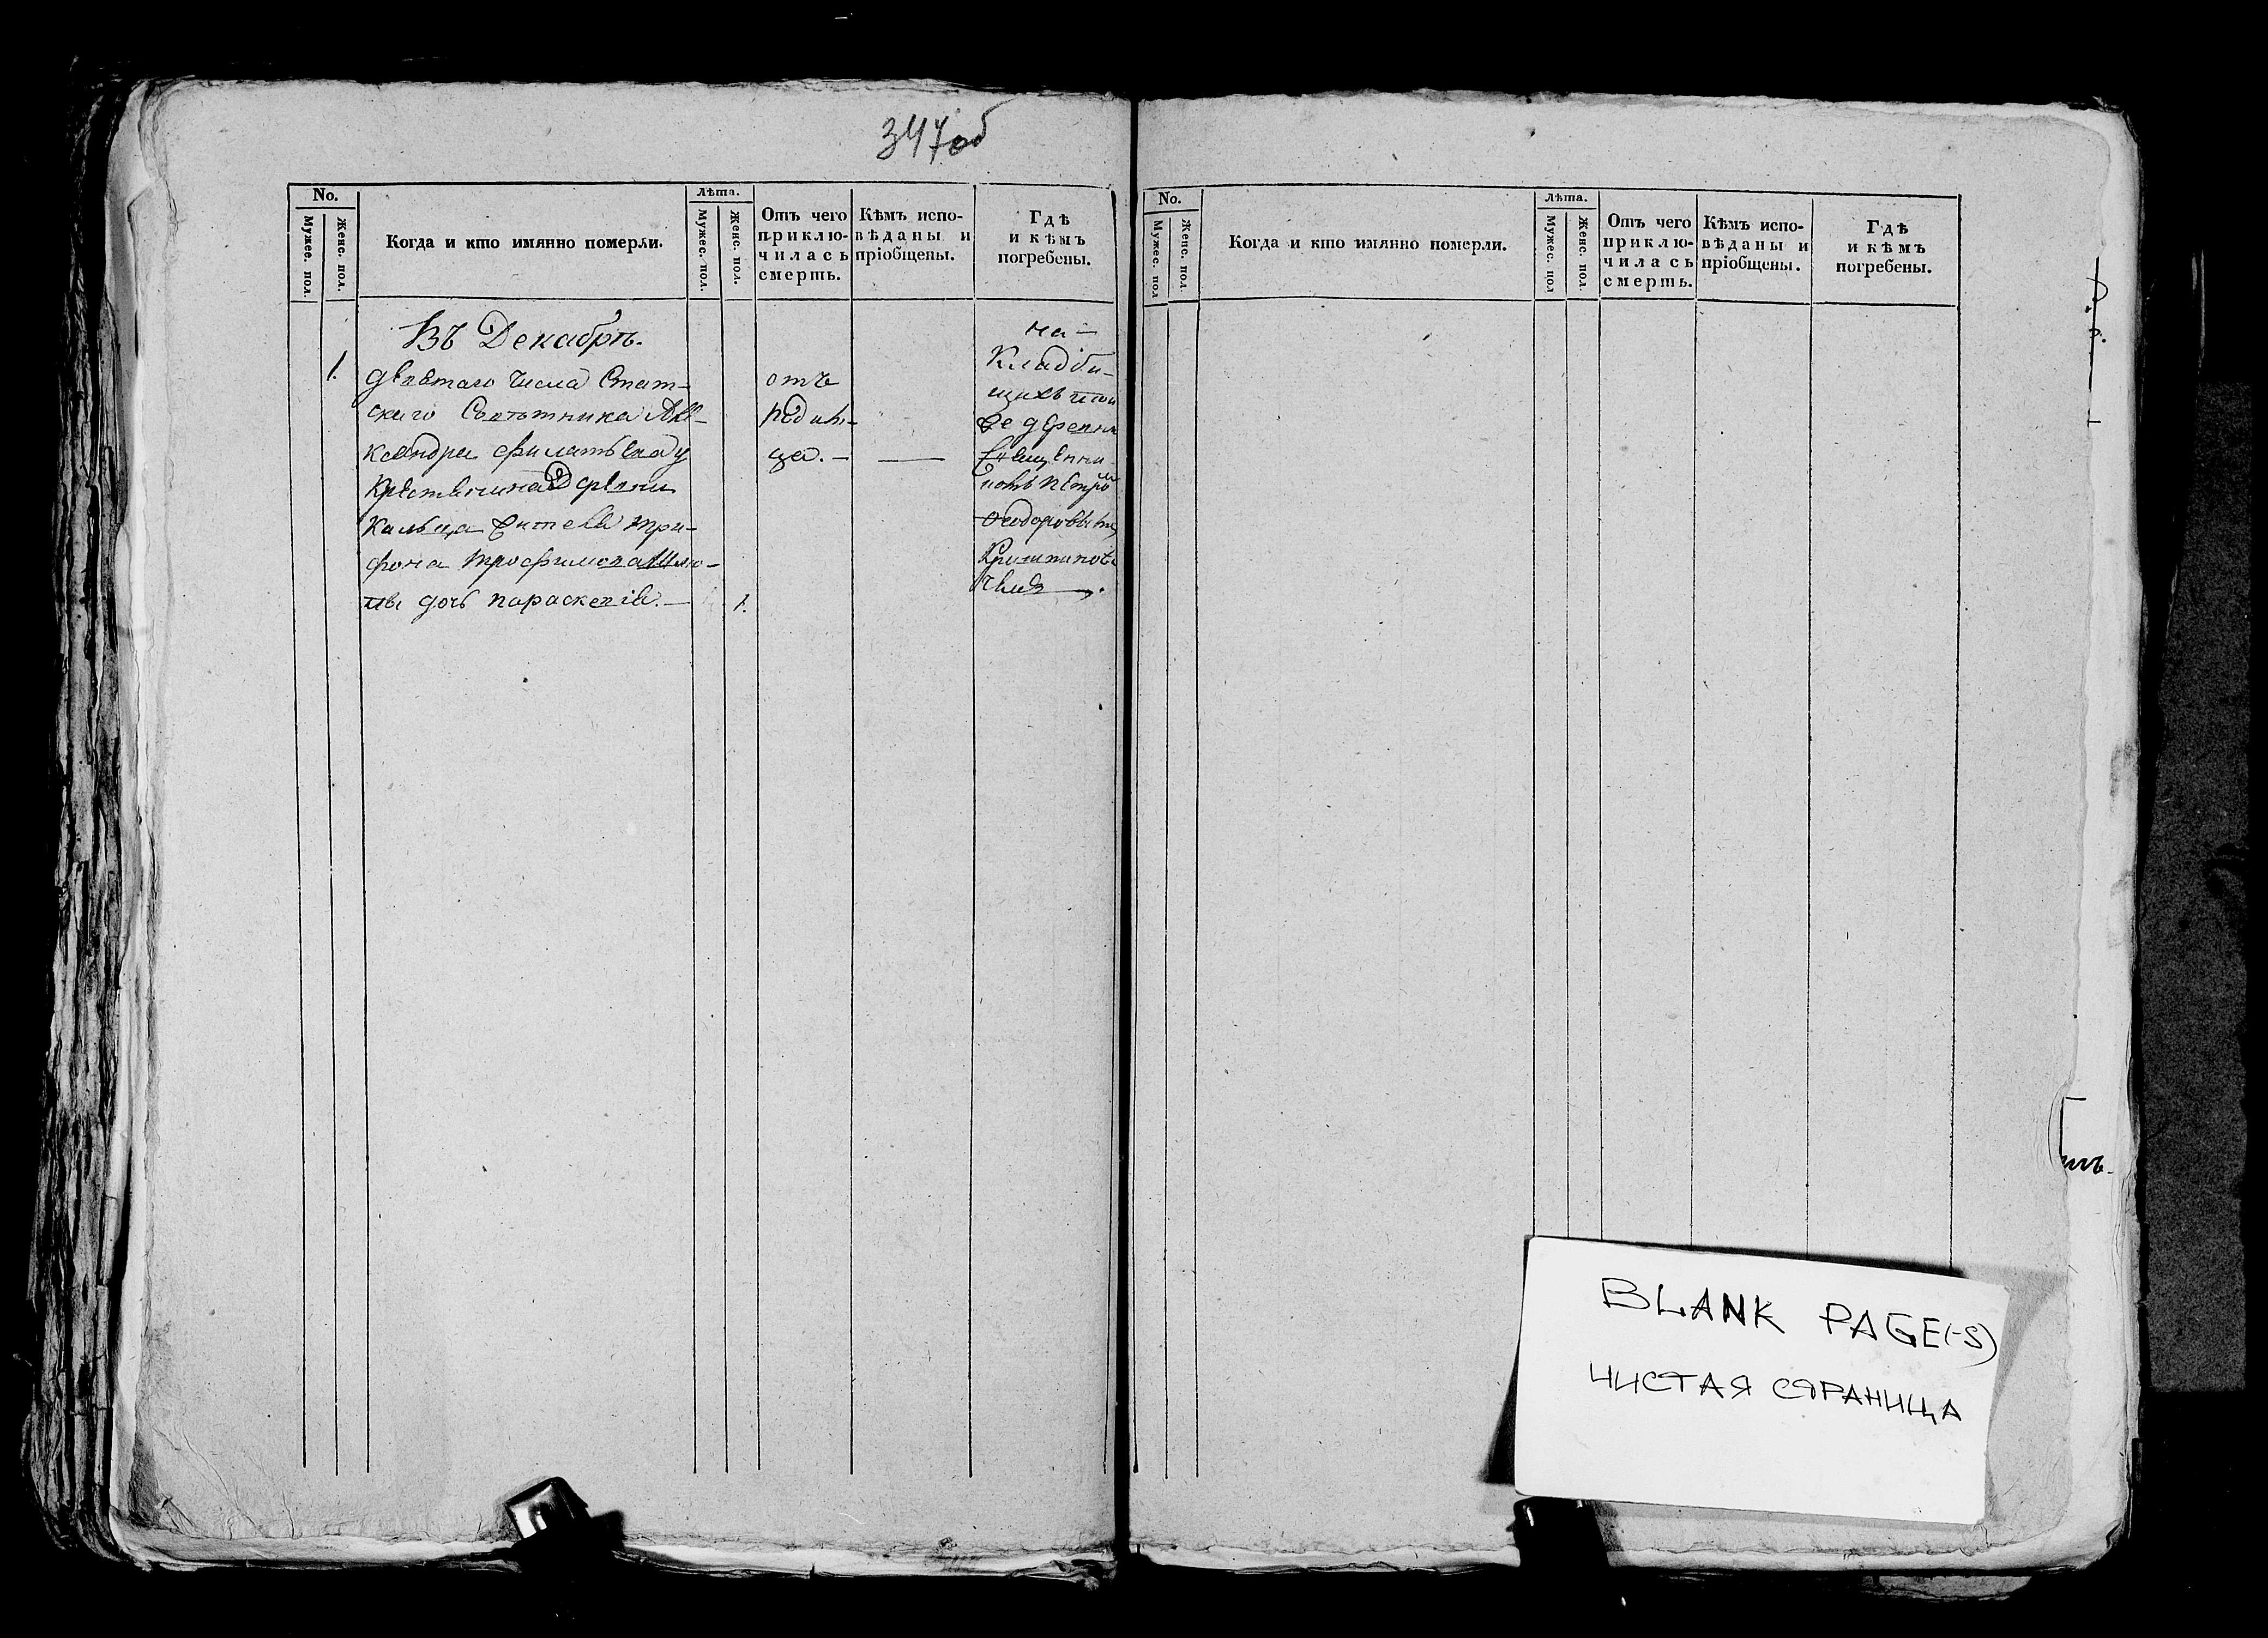 347об
No.
Мужес. пол.
Женс. пол.
Когда и кто имянно померли.
Лѣта.
Мужес. пол.
Женс. пол.
Отъ чего
приклю-
чилась
смерть.
Кѣмъ испо-
вѣданы и
пріобщены.
Гдѣ
и кѣмъ
погребены.
Въ Декабрѣ.
1.
девятаго числа Стат-
скаго Совѣтника Але-
ксандра
Крестьянина деревни
жителя Три-
фона Трофимова
дочь параскевія. —
1.
отъ
родим-
ца. —
—
на —
Кладби-
щахъ той
же деревни
Священни-
комъ Петромъ
Ѳеодоровымъ
No.
Мужес. пол
Женс. пол.
Когда и кто имянно померли.
Лѣта.
Мужес. пол
Женс. пол.
Отъ чего
приклю-
чилась
смерть.
Кѣмъ испо-
вѣданы и
пріобщены.
Гдѣ
и кѣмъ
погребены.
BLANK PAGE(-S)
ЧИСТАЯ СТРАНИЦА